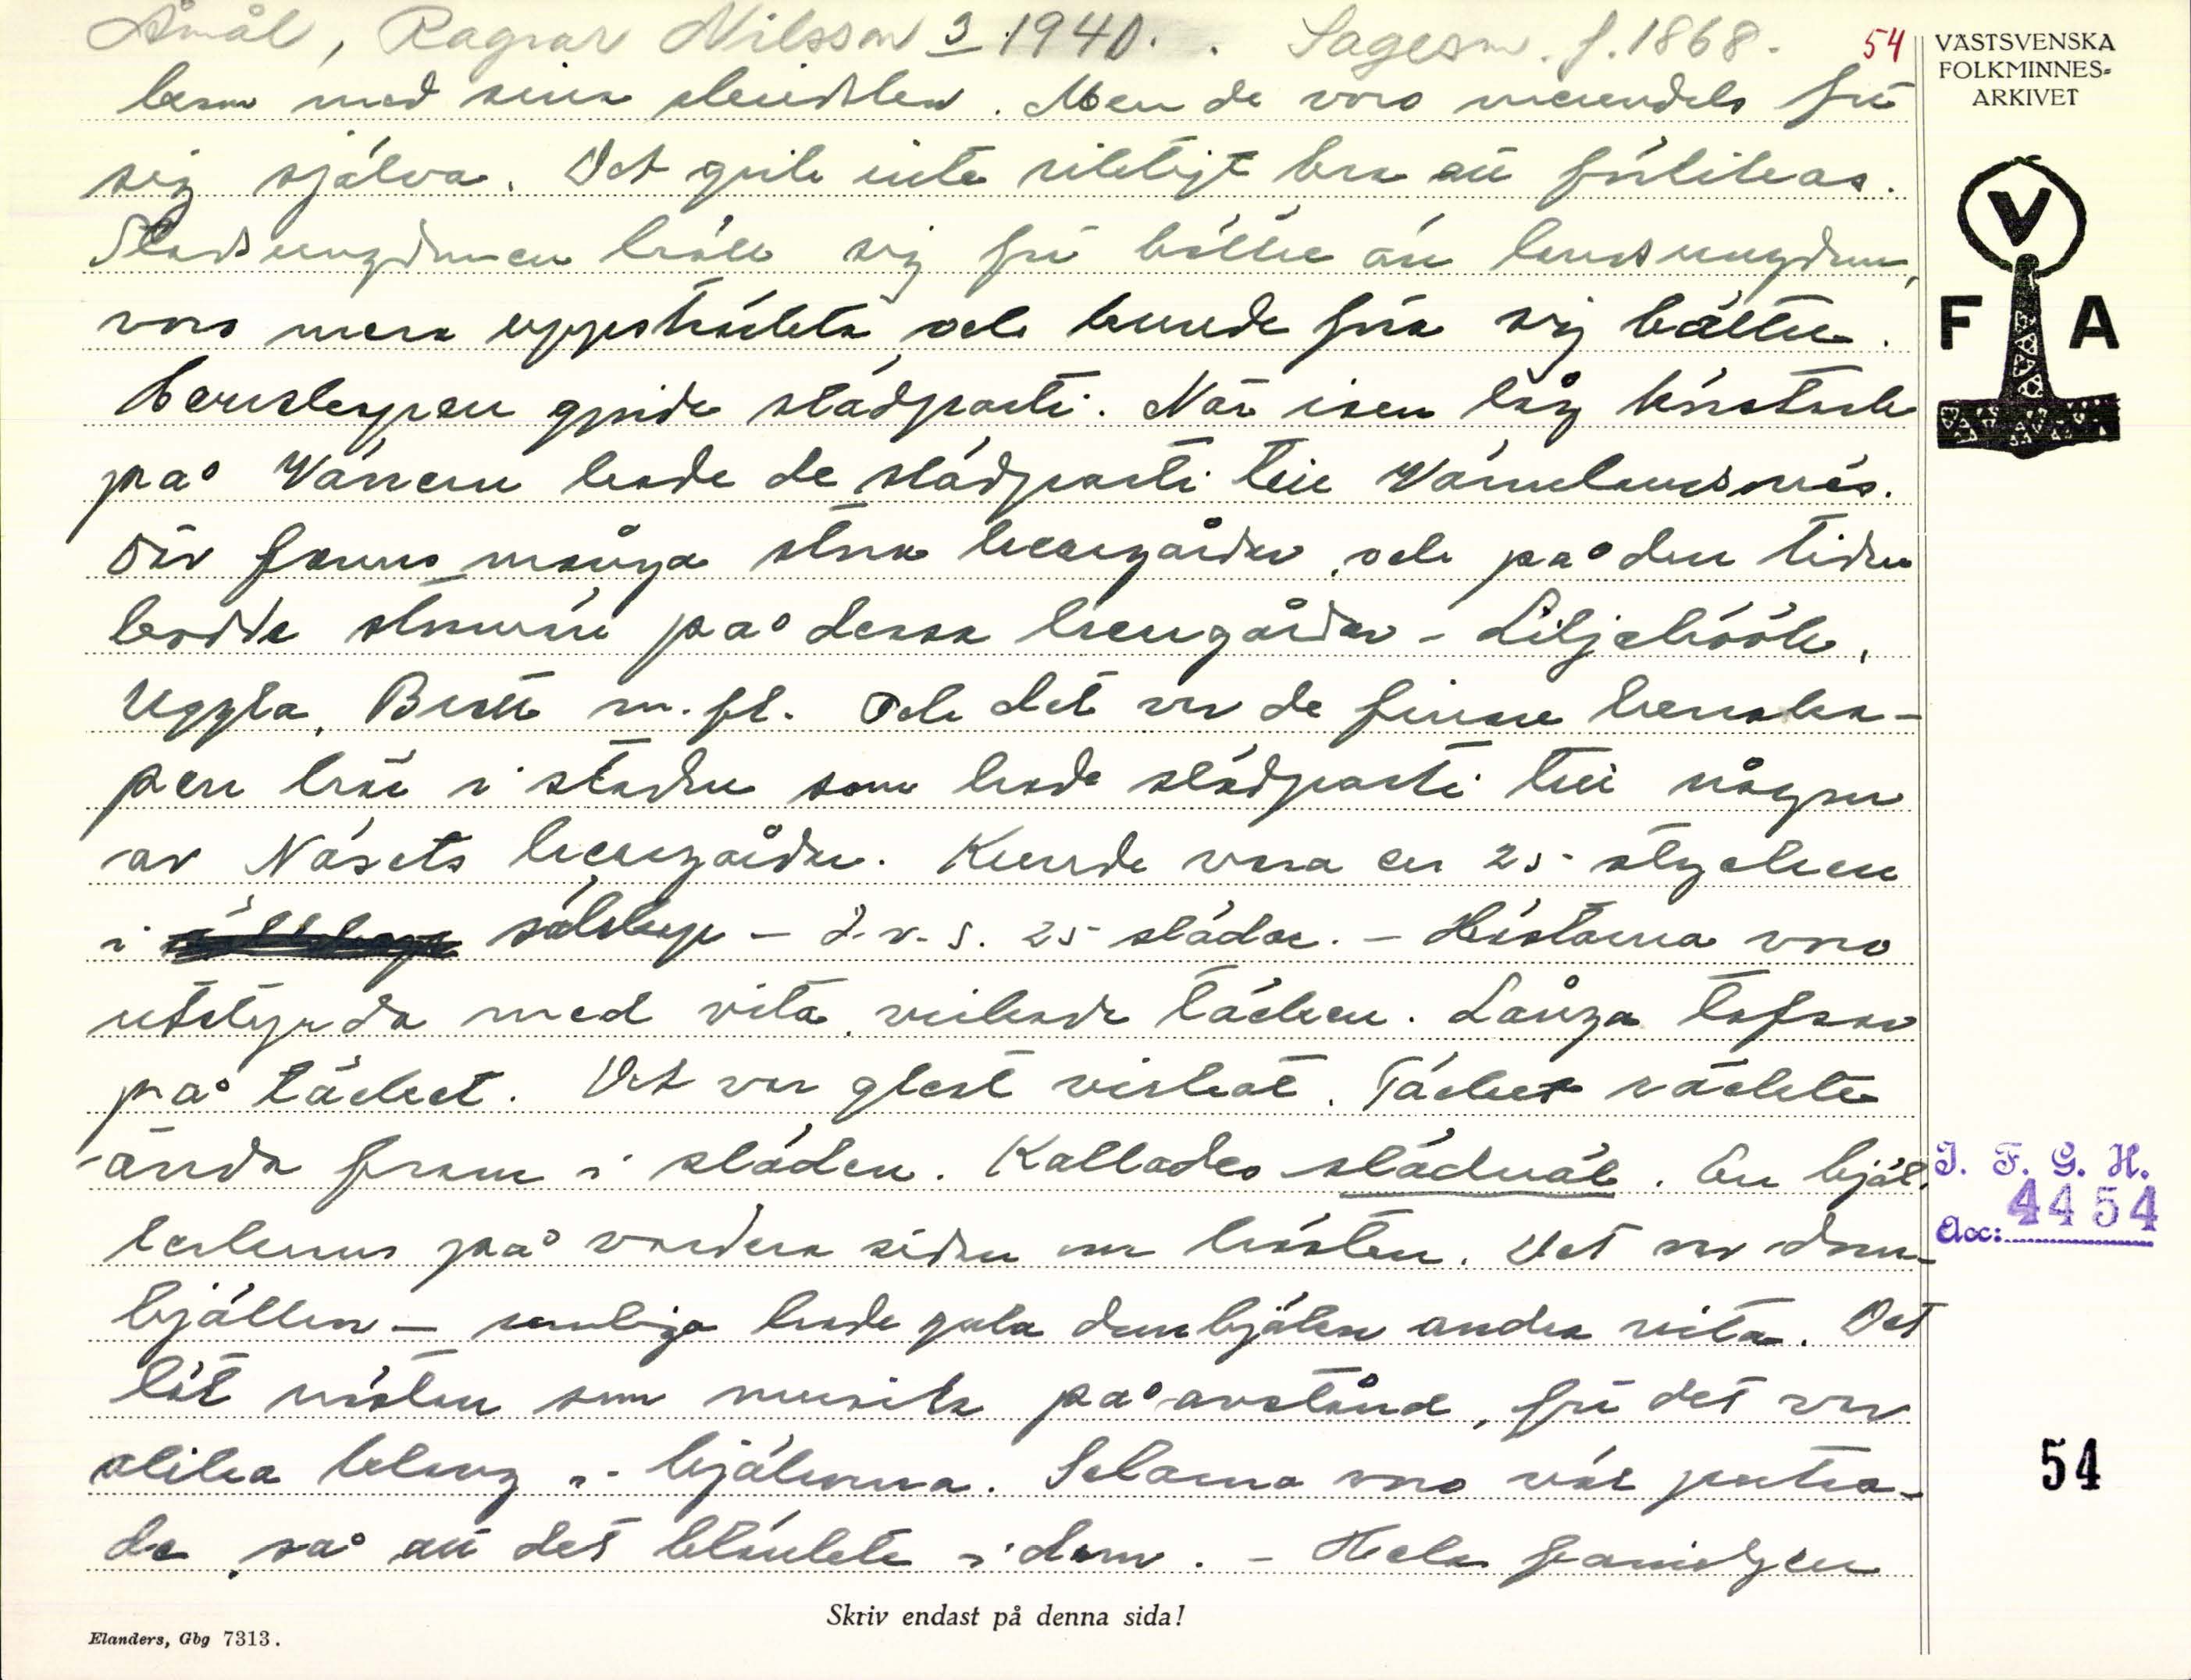 Åmål, Ragnar Nilsson 3 1940. Sagesm. f. 1868. 54
barn med sina släkter. Men de voro merendels för
sig själva. Det gick inte riktigt bra att förlikas.
Stadsungdomen höll sig för bättre än landsungdom,
voro mera uppsträckta och kunde föra sig bättre.
Herrskapen gjorde slädparti. När isen låg
på Vänern hade de slädparti till Värmlandsnäs.
Där fanns många stora herrgårdar, och på den tiden
bodde stormän på dessa herrgårdar - Liljehöök,
Uggla, Bratt m.fl. Och det var de finare herrska-
pen här i staden som hade slädparti till någon
av Näsets herrgårdar. Kunde vara en 25-stycken
i sällskap - d.v.s. 25 slädar. - Hästarna voro
utstyrda med vita, virkade täcken. Långa tofsar
på täcket. Det var glest virkat. Täcket räckte
ända fram i släden. Kallades slädnät. En bjäl-
lerkrans på vardera sidan om hästen. Det var dom-
bjällror - somliga hade gula dombjällror andra vita. Det
lät nästan som musik på avstånd, för det var
olika klang i bjällrorna. Selarna voro väl putsa-
de, så att det blänkte i dem. - Hela familjen
VÄSTSVENSKA
FOLKMINNES-
ARKIVET
V
F A
I. F. G. H.
Acc: 4454
54
Skriv endast på denna sida!
Elanders, Gbg 7313.